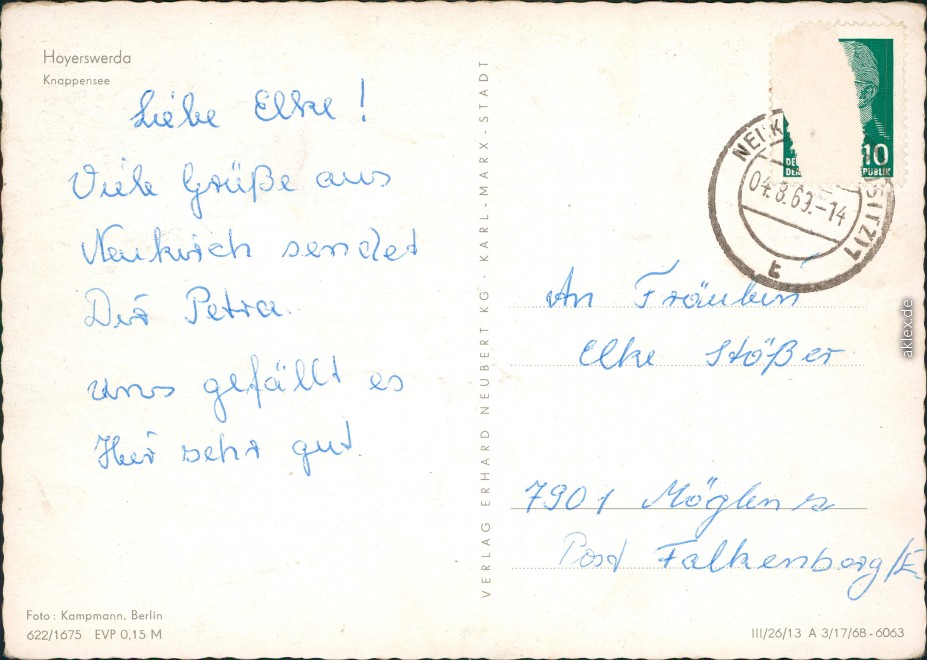 Hoyerswerda
Knappensee
Liebe Elke!
Viele Grüße aus
Neukirch sendet
Dir Petra.
uns gefällt es
Hier sehr gut.
Foto: Kampmann, Berlin
622/1675 EVP 0,15 M
VERLAG ERHARD NEUBERT KG · KARL-MARX-STADT
10
04.8.69.-14
An Fräulein
Elke Stößer
7901 Möglenz
Post Falkenberg/E
III/26/13 A 3/17/68-6063
aklex.de